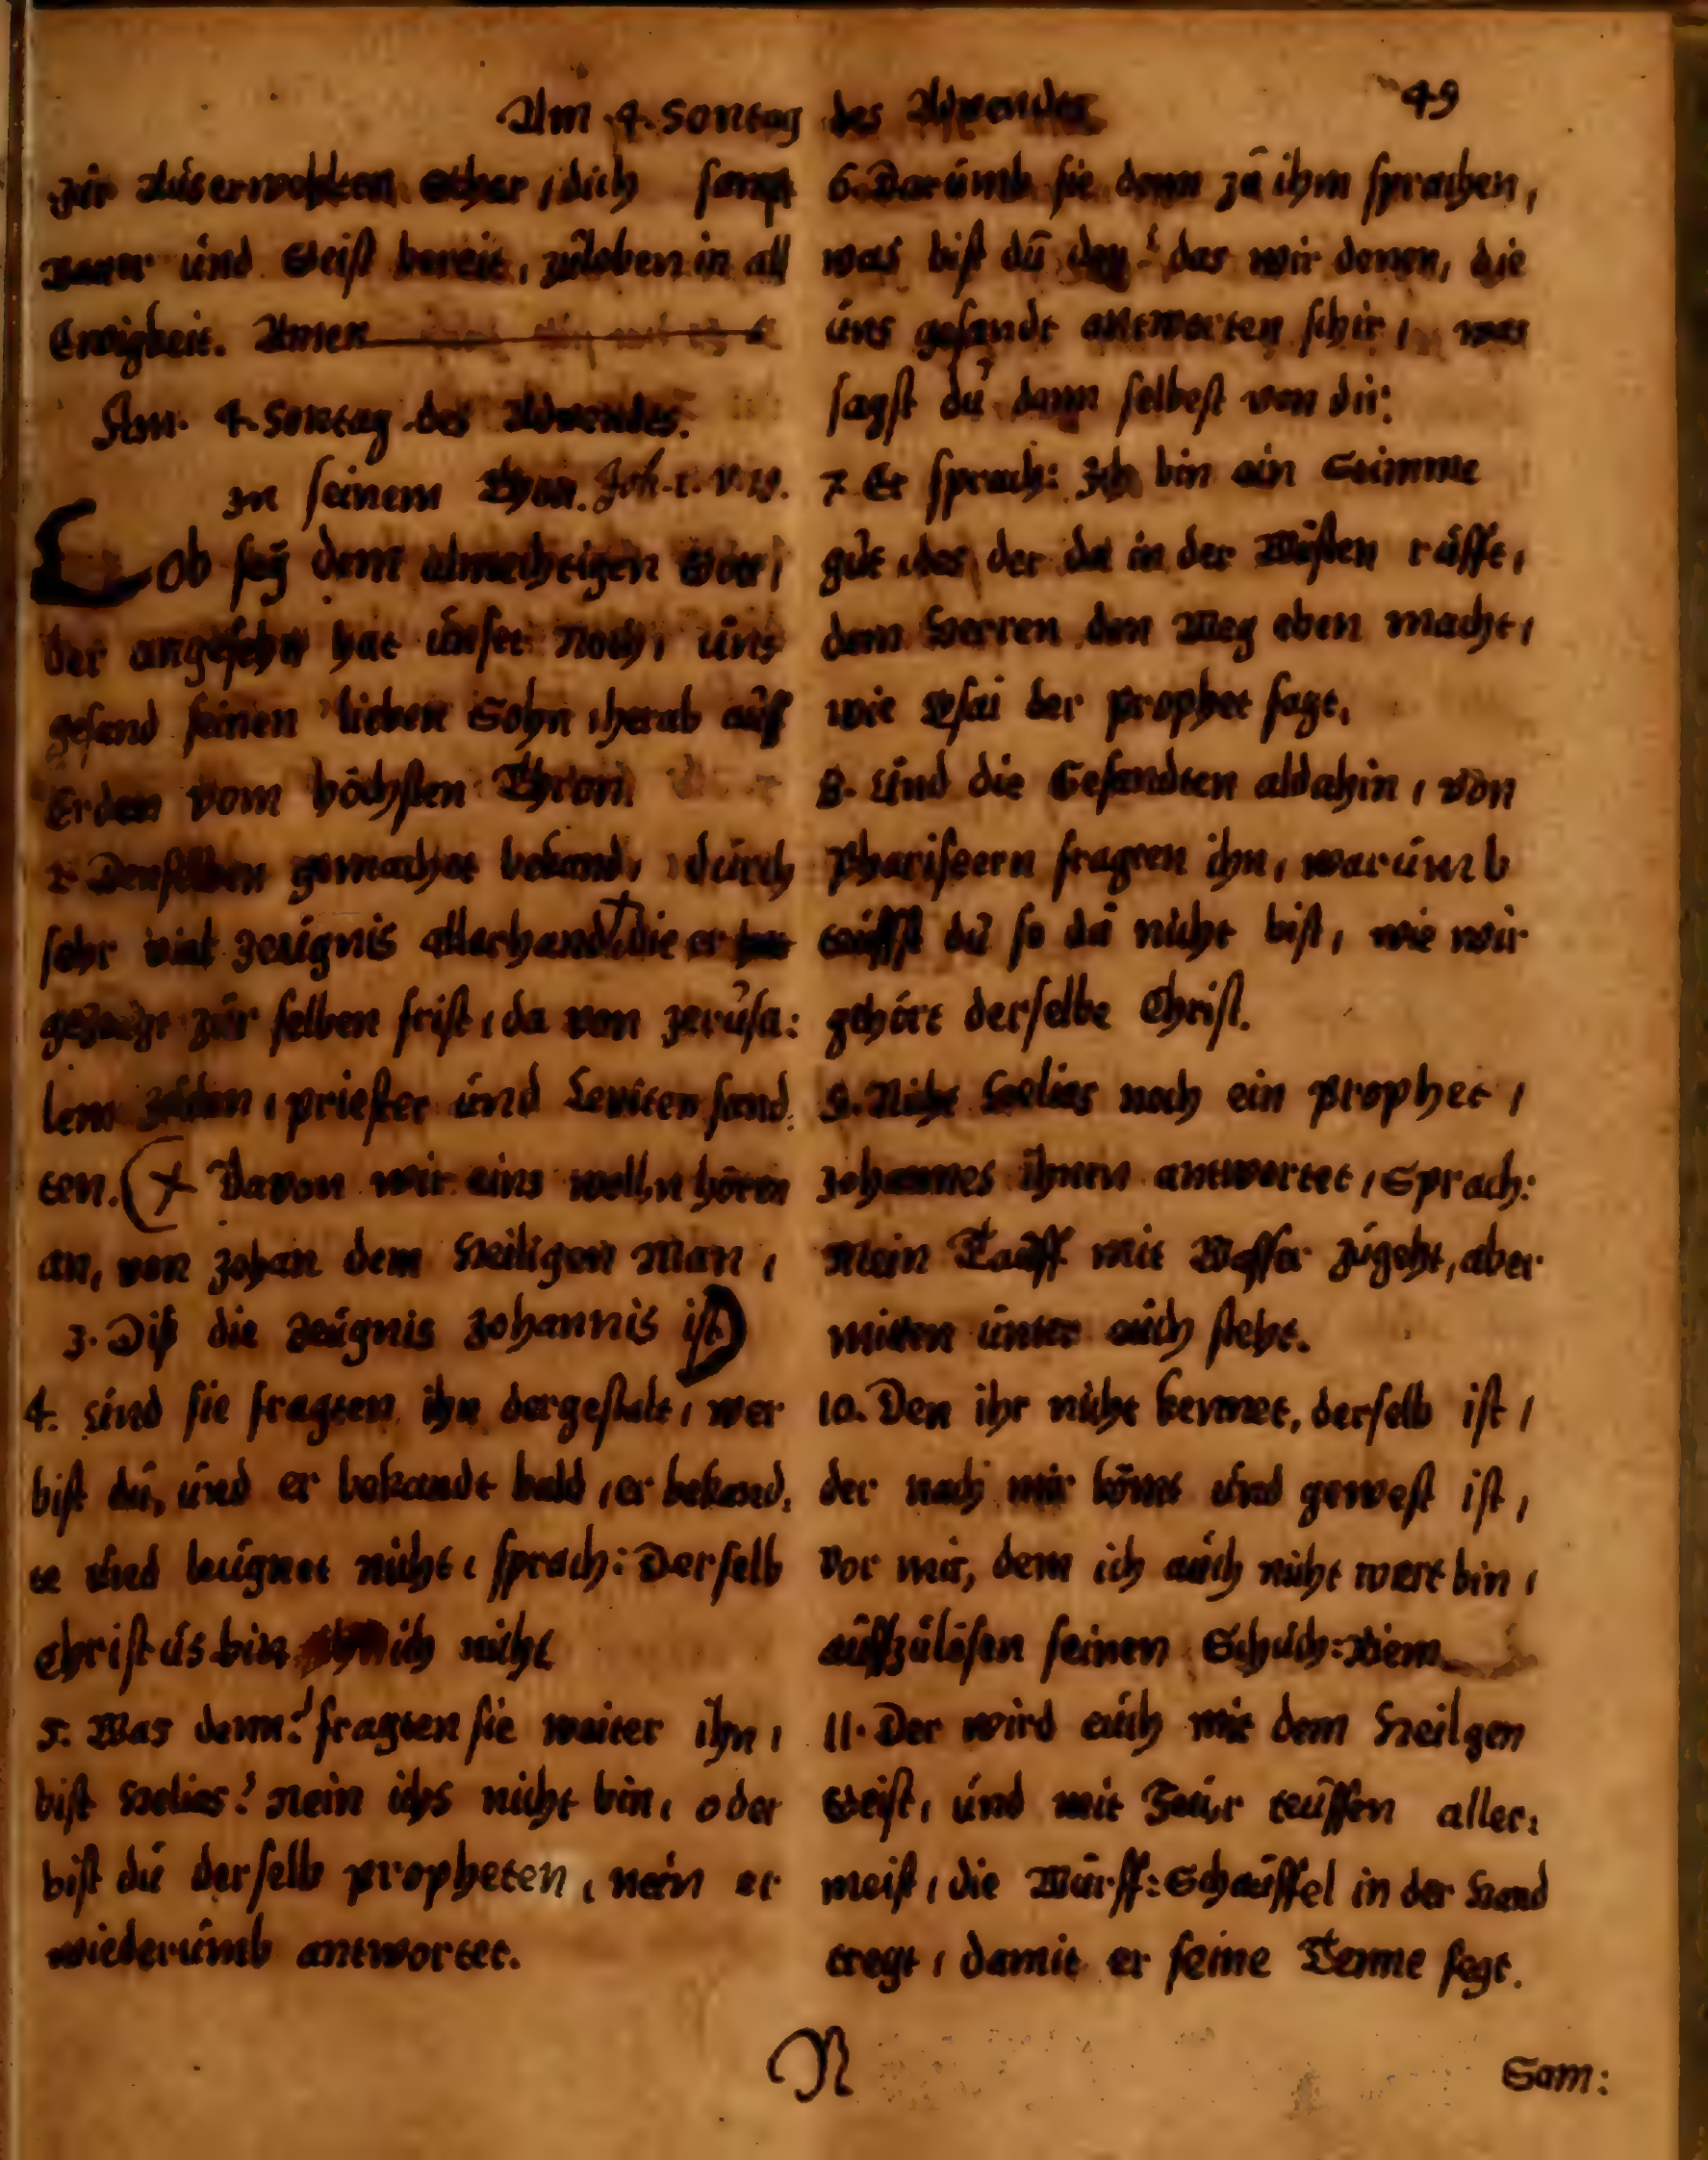 Am 4. Sontag des Adventes 49
zir Auserwohlten, dich sampt
und Geist bereit, zuloben in all
Ewigkeit. Amen
Am. 4. Sontag des Adventes.
In seinem Thon. Joh. 1. v. 19.
Lob seÿ dem almechtigen Gott,
der angesehn hat unser Noth, uns
gesand seinen lieben Sohn, herab auff
Erden vom höchsten Thron.
2. Denselben gemachet bekand, durch
sehr viel Zeugnis allerhand, die er
gezeugt zur selben frist, da von Jerusa:
lem Jüden, priester und Leviten sand:
ten. (+ Davon wir eins wolln hören
an, von Johan dem Heiligen Man,
3. Diß die Zeugnis Johannis ist)
4. Und sie fragten ihn dergestalt, wer
bist du, und er bekandt bald, er bekand:
te und leugnet nicht, sprach: Derselb
Christus bin ich nicht
5. Was denn? fragten sie weiter ihn,
bist Helias? Nein ichs nicht bin, oder
bist du derselb propheten, nein er
wiederumb antwortet.
6. Darumb sie denn zu ihm sprachen,
was bist du den? das wir denen, die
uns gesandt antworten schir, was
sagst du dann selbest von dir:
7. Er sprach: Ich bin ein Stimme
gut, des der da in der Wüsten rufft,
dem Herren den Weg eben macht,
wie Esai der prophet sagt,
8. Und die Gesandten aldahin, von
Phariseern fragten ihn, warumb
täuffst du so du nicht bist, wie wir
gehört derselbe Christ.
9. Nicht Helias noch ein prophet,
Johannes ihnen antwortet, Sprach:
Mein Tauff mit Wasser zugeht, aber
mitten unter euch steht.
10. Den ihr nicht kennet, derselb ist,
der nach mir kömt und gewest ist,
vor mir, dem ich auch nicht wert bin,
auffzulösen seinen Schuch:Riem
11. Der wird euch mit dem Heilgen
Geist, und mit Feur teuffen aller:
meist, die Wurff:Schauffel in der Hand
tregt, damit er seine Tenne fegt.
N Sam: